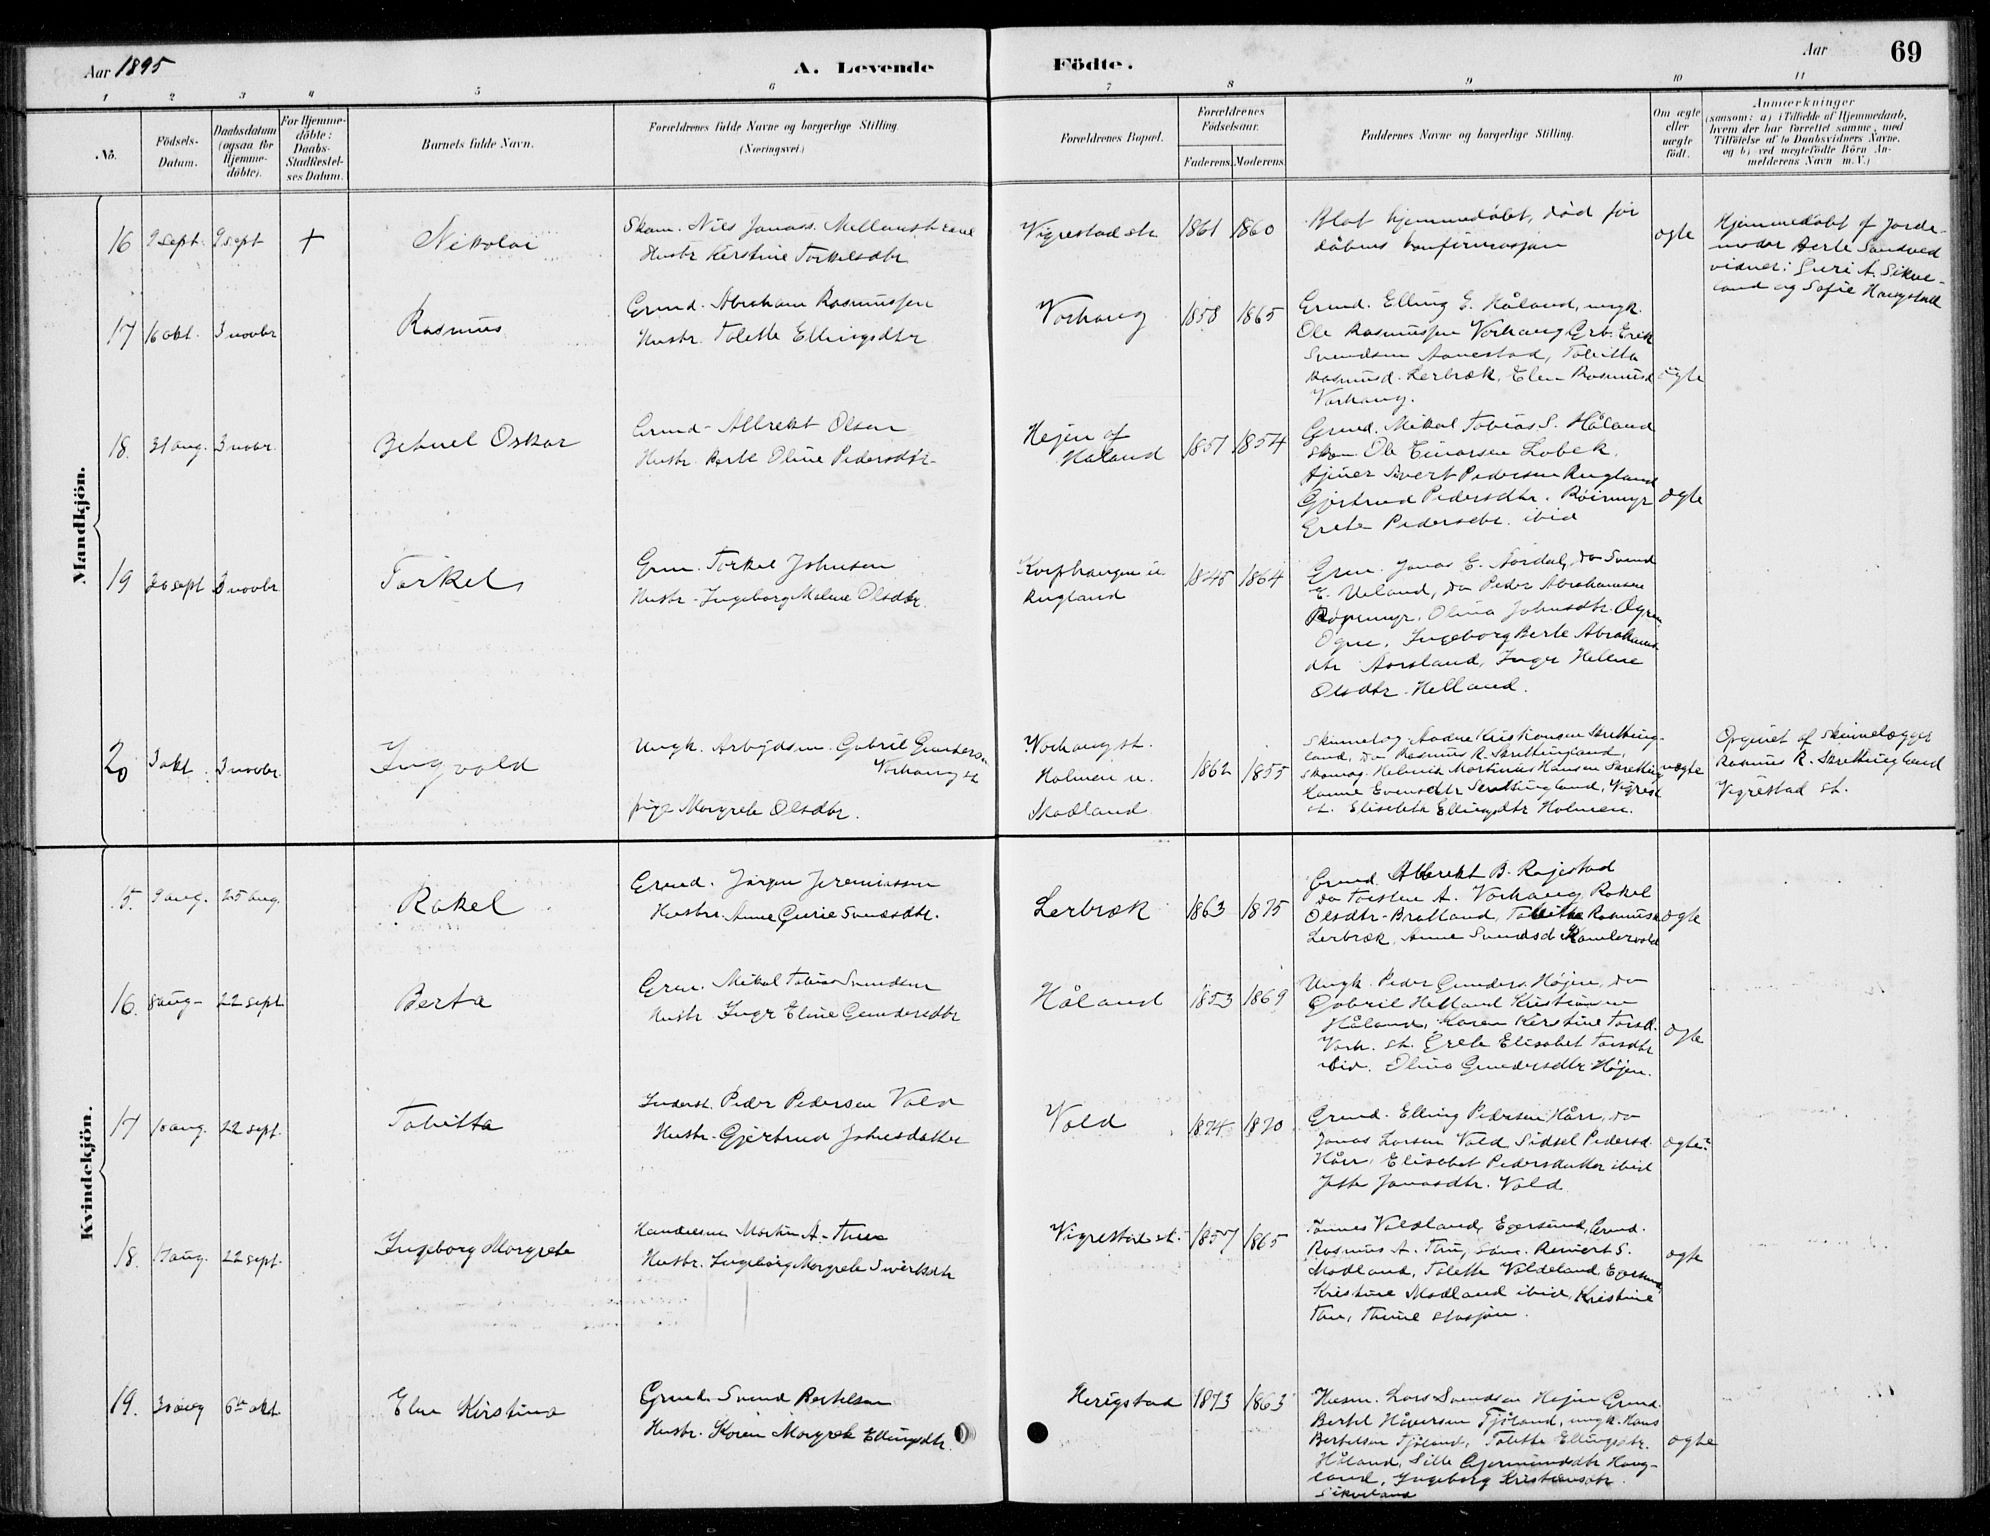 Aar 1895
A. Levende Födte.
Aar
69
1 2 3 4 5 6 7 8 9 10 11
No.
Födsels-Datum.
Daabsdatum (ogsaa for Hjemme-döbte).
For Hjemme-döbte: Daabs-Stadfæstel-ses Datum.
Barnets fulde Navn.
Forældrenes fulde Navne og borgerlige Stilling. (Næringsvei.)
Forældrenes Bopæl.
Forældrenes Födselsaar.
Faderens. Moderens.
Faddernes Navne og borgerlige Stilling.
Om ægte eller uægte födt.
Anmærkninger
(saasom: a) i Tilfælde af Hjemmedaab,
hvem der har forrettet samme, med
Tilföielse af to Daabsvidners Navne.
og b) ved uægtefödte Börn An-
melderens Navn m. V.)
Mandkjön.
16 9 sept. 9 sept + Nikolai
Skom. Nils Jonass. Mellomstrand
Hustr. Kirstine Torkelsdtr
Vigrestad st. 1861 1860
Blot hjemmedöbt, död för
dåbens konfirmasjon
ogte
Hjemmedöbt af Jorde-
moder Berte Sandved
vidner: Guri A. Sikve-
land og Sofie Haugstad
17 16 okt. 3 novbr Rasmus
Grund. Abraham Rasmussen
Hustr. Tolette Ellingsdtr
Vorhaug 1858 1865
Grund. Elling E. Håland, ungk.
Ole Rasmussen Vorhaug Grb. Erik
Svendsen Aanestad, Tobitta
Rasmusd. Lerbræk, Elen Rasmusd
Vorhaug.
ögte
18. 31 aug. 3 novbr. Betuel Oskar
Grund. Albrekt Olsen
Hustr. Berte Oline Pedersdtr
Hejen af Håland 1857 1854
Grund. Mikal Tobias S. Håland
Skom Ole Einarsen Lobek,
Sivert Pedersen Rugland
Gjertrud Pedersdtr. Röirmyr
Grete Pedersdtr. ibid
ogte
19 20 sept 3 novbr Torkel
Grun. Torkel Johnsen
Hustr. Ingeborg Malene Olsdtr.
Rugland 1845 1864
Grun. Jonas E. Aarsdal, do Svend
E. Ueland, do Peder Abrahamsen
Olina Johnsdtr. Ogne
Ogne, Ingeborg Berte Abrahams
dtr Aarsland, Inger Helene
Olsdtr. Helland.
20 3 okt. 3 novbr. Ingvald
Ungk. Arbejdsm. Gabriel Gunders.
Vorhaug st
pige Margrete Olsdtr.
Vorhaug st.
Holmen u.
Skadland
1862 1855
Skinnelæg. Aadne Kristiansen Skretting-
land, do Rasmus R. Skrettingland,
Skomag. Helmik Martinius Hansen Skretting
Hanne Evensdtr Skrettingland, Vigrest
st. Elisebta Ellingsdtr Holmen.
uægte
Opgivet af skinnelægger
Rasmus R. Skrettingland
Vigrestad st.
Kvindekjön.
15. 9 aug. 25 aug. Rakel
Grund. Jörgen Jeremiassen
Hustr. Anne Gurie Svendsdtr.
Lerbræk 1863 1875
Grund. Albrekt B. Rojestad
do Torsten A. Vorhaug, Rakel
Olsdtr. Bratland, Tobitta Rasmusd
Lerbræk, Anne Svendsd
ogte
16. 8 aug. 22 sept. Berta
Grun. Mikal Tobias Svendsen
Hustr Inger Eline Gundersdtr
Håland 1853 1869
Ungk. Peder Gunders. Höjen, do
Gabriel Helland Kristian
Håland, Karen Kirstine Torsd.
Vorh. st. Grete Elisabet Torsdtr
ibid. Olina Gundersdtr Höjen.
ogte
17 10 aug. 22 sept. Tobitta
Inderst. Peder Pedersen Vold
Hustr. Gjertrud Johnsdatter
Vold 1874 1870
Grund. Elling Pedersen Hårr, do
Jonas Larsen Vold Sidsel Pedersd.
Hårr, Elisabet Pedersdatter ibid
Jonasdtr. Vold
ogte
18. 17 aug. 22 sept. Ingeborg Margrete
Handelsm Martin A. Thue
Hustr. Ingeborg Margrete Sivertsdtr
Vigrestad st. 1857 1865
Tönnes Valdland, Egersund, Grund.
Rasmus A. Thu, Reinert S.
Modland, Tolette Valdeland Egersund
Kristine Modland ibid, Kristine
Thu, Thime stasjon.
ogte
19. 30 aug 6te okt. Elen Kirstina
Grund. Svend Bertelsen
Hustr. Karen Margrete Ellingsdtr.
Herigstad 1873 1863
Husm. Lars Svendsen Hejen Grund.
Bertel Håversen Fjöland, ungk. Hans
Bertelsen Fjöland, Tolette Ellingsdtr.
Håland, Sille Gjermundsdtr Haug-
land, Ingeborg Kristiansdtr
Sikveland
ogte